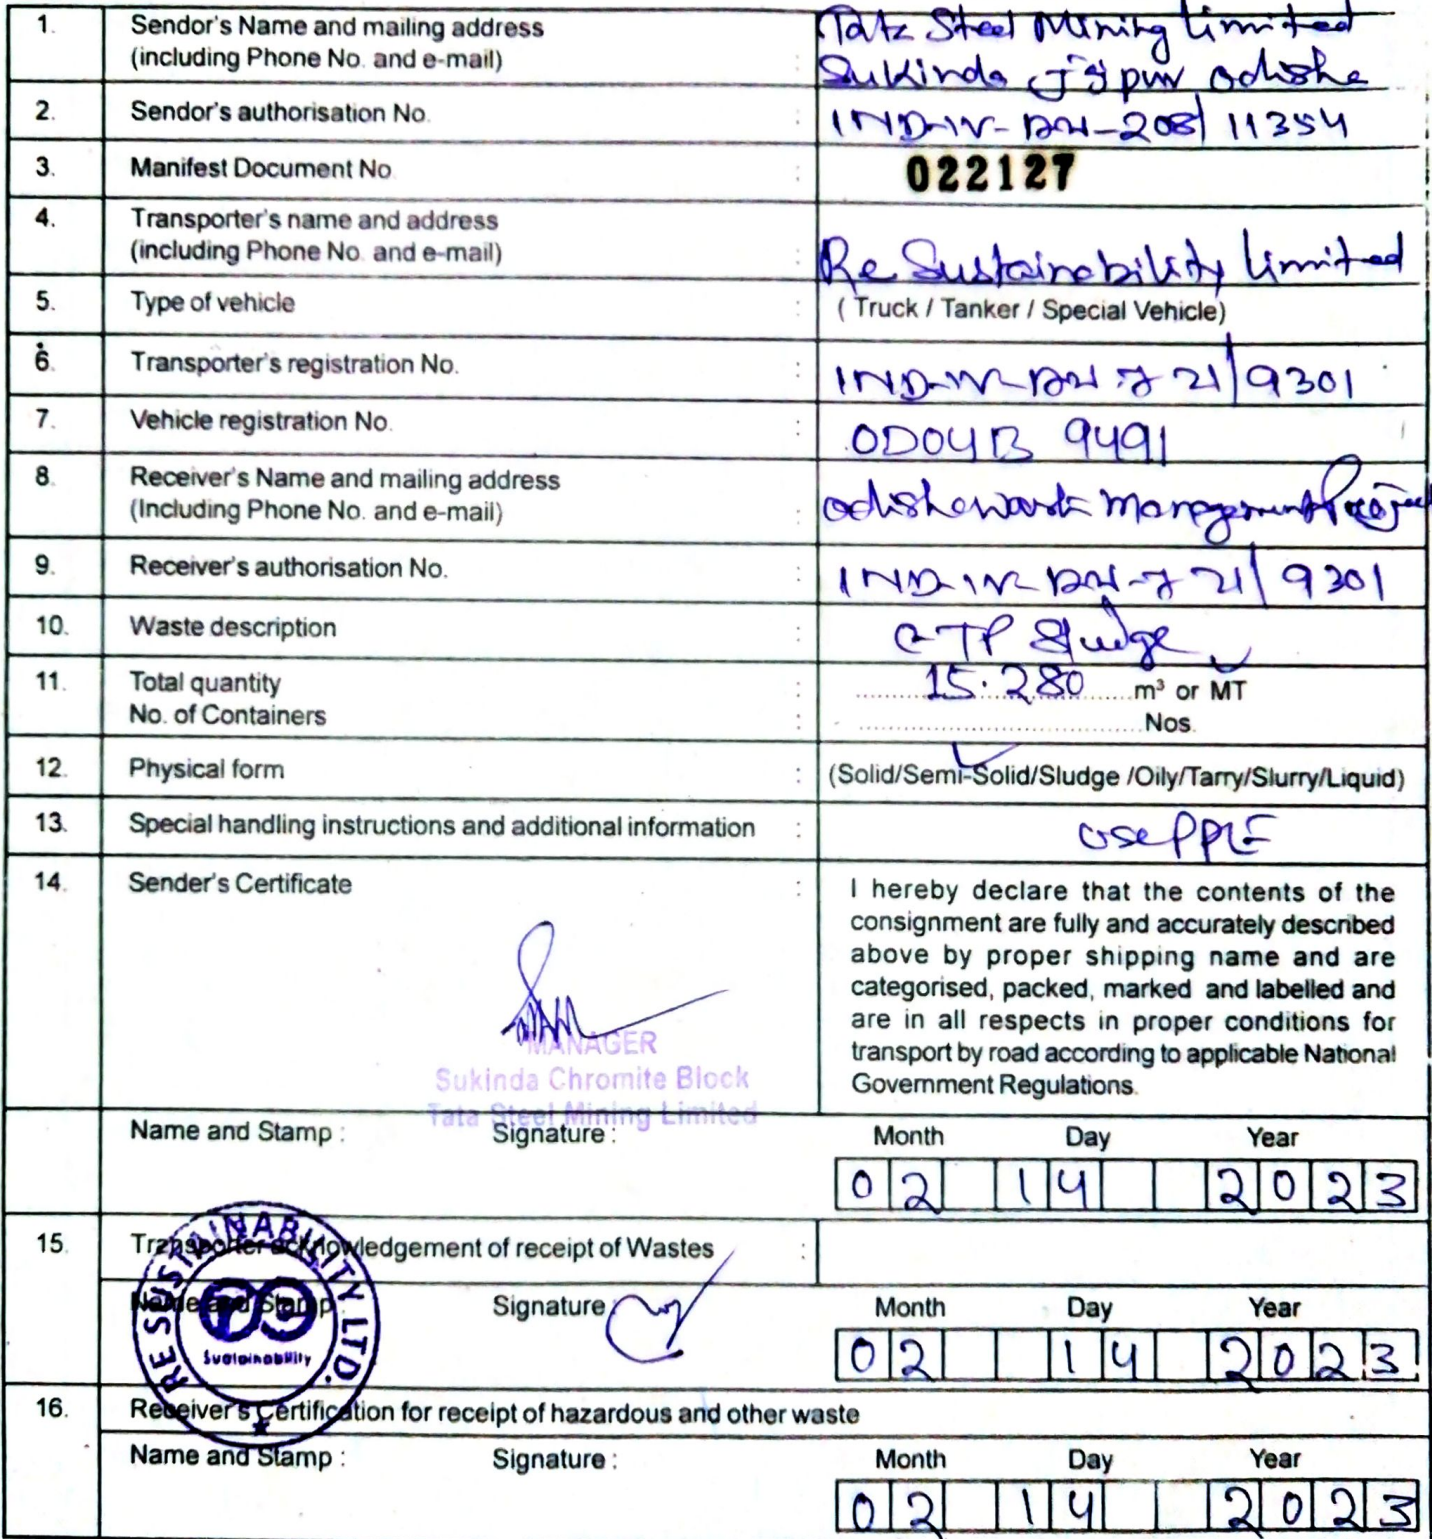 1. Sendor's Name and mailing address
(including Phone No. and e-mail) :
Tata Steel Mining Limited
Sukinda Jajpur Odisha
2. Sendor's authorisation No. : IND-IV-HW-208/11354
3. Manifest Document No. : 022127
4. Transporter's name and address
(including Phone No. and e-mail) : Re Sustainability Limited
5. Type of vehicle : (Truck / Tanker / Special Vehicle)
6. Transporter's registration No. : IND-IV-HW-721/9301
7. Vehicle registration No. : OD04B 9491
8. Receiver's Name and mailing address
(Including Phone No. and e-mail) : Odisha Waste Management Project
9. Receiver's authorisation No. : IND-IV-HW-721/9301
10. Waste description : ETP Sludge
11. Total quantity : 15.280 m³ or MT
No. of Containers : Nos.
12. Physical form : (Solid/Semi-Solid/Sludge /Oily/Tarry/Slurry/Liquid)
13. Special handling instructions and additional information : Use PPE
14. Sender's Certificate :
I hereby declare that the contents of the
consignment are fully and accurately described
above by proper shipping name and are
categorised, packed, marked and labelled and
are in all respects in proper conditions for
transport by road according to applicable National
Government Regulations.
MANAGER
Sukinda Chromite Block
Tata Steel Mining Limited
Name and Stamp : Signature : Month Day Year
02 14 2023
15. Transporter acknowledgement of receipt of Wastes :
Name and Stamp : Signature Month Day Year
02 14 2023
RE SUSTAINABILITY LTD.
Sustainability
16. Receiver's Certification for receipt of hazardous and other waste
Name and Stamp : Signature : Month Day Year
02 14 2023